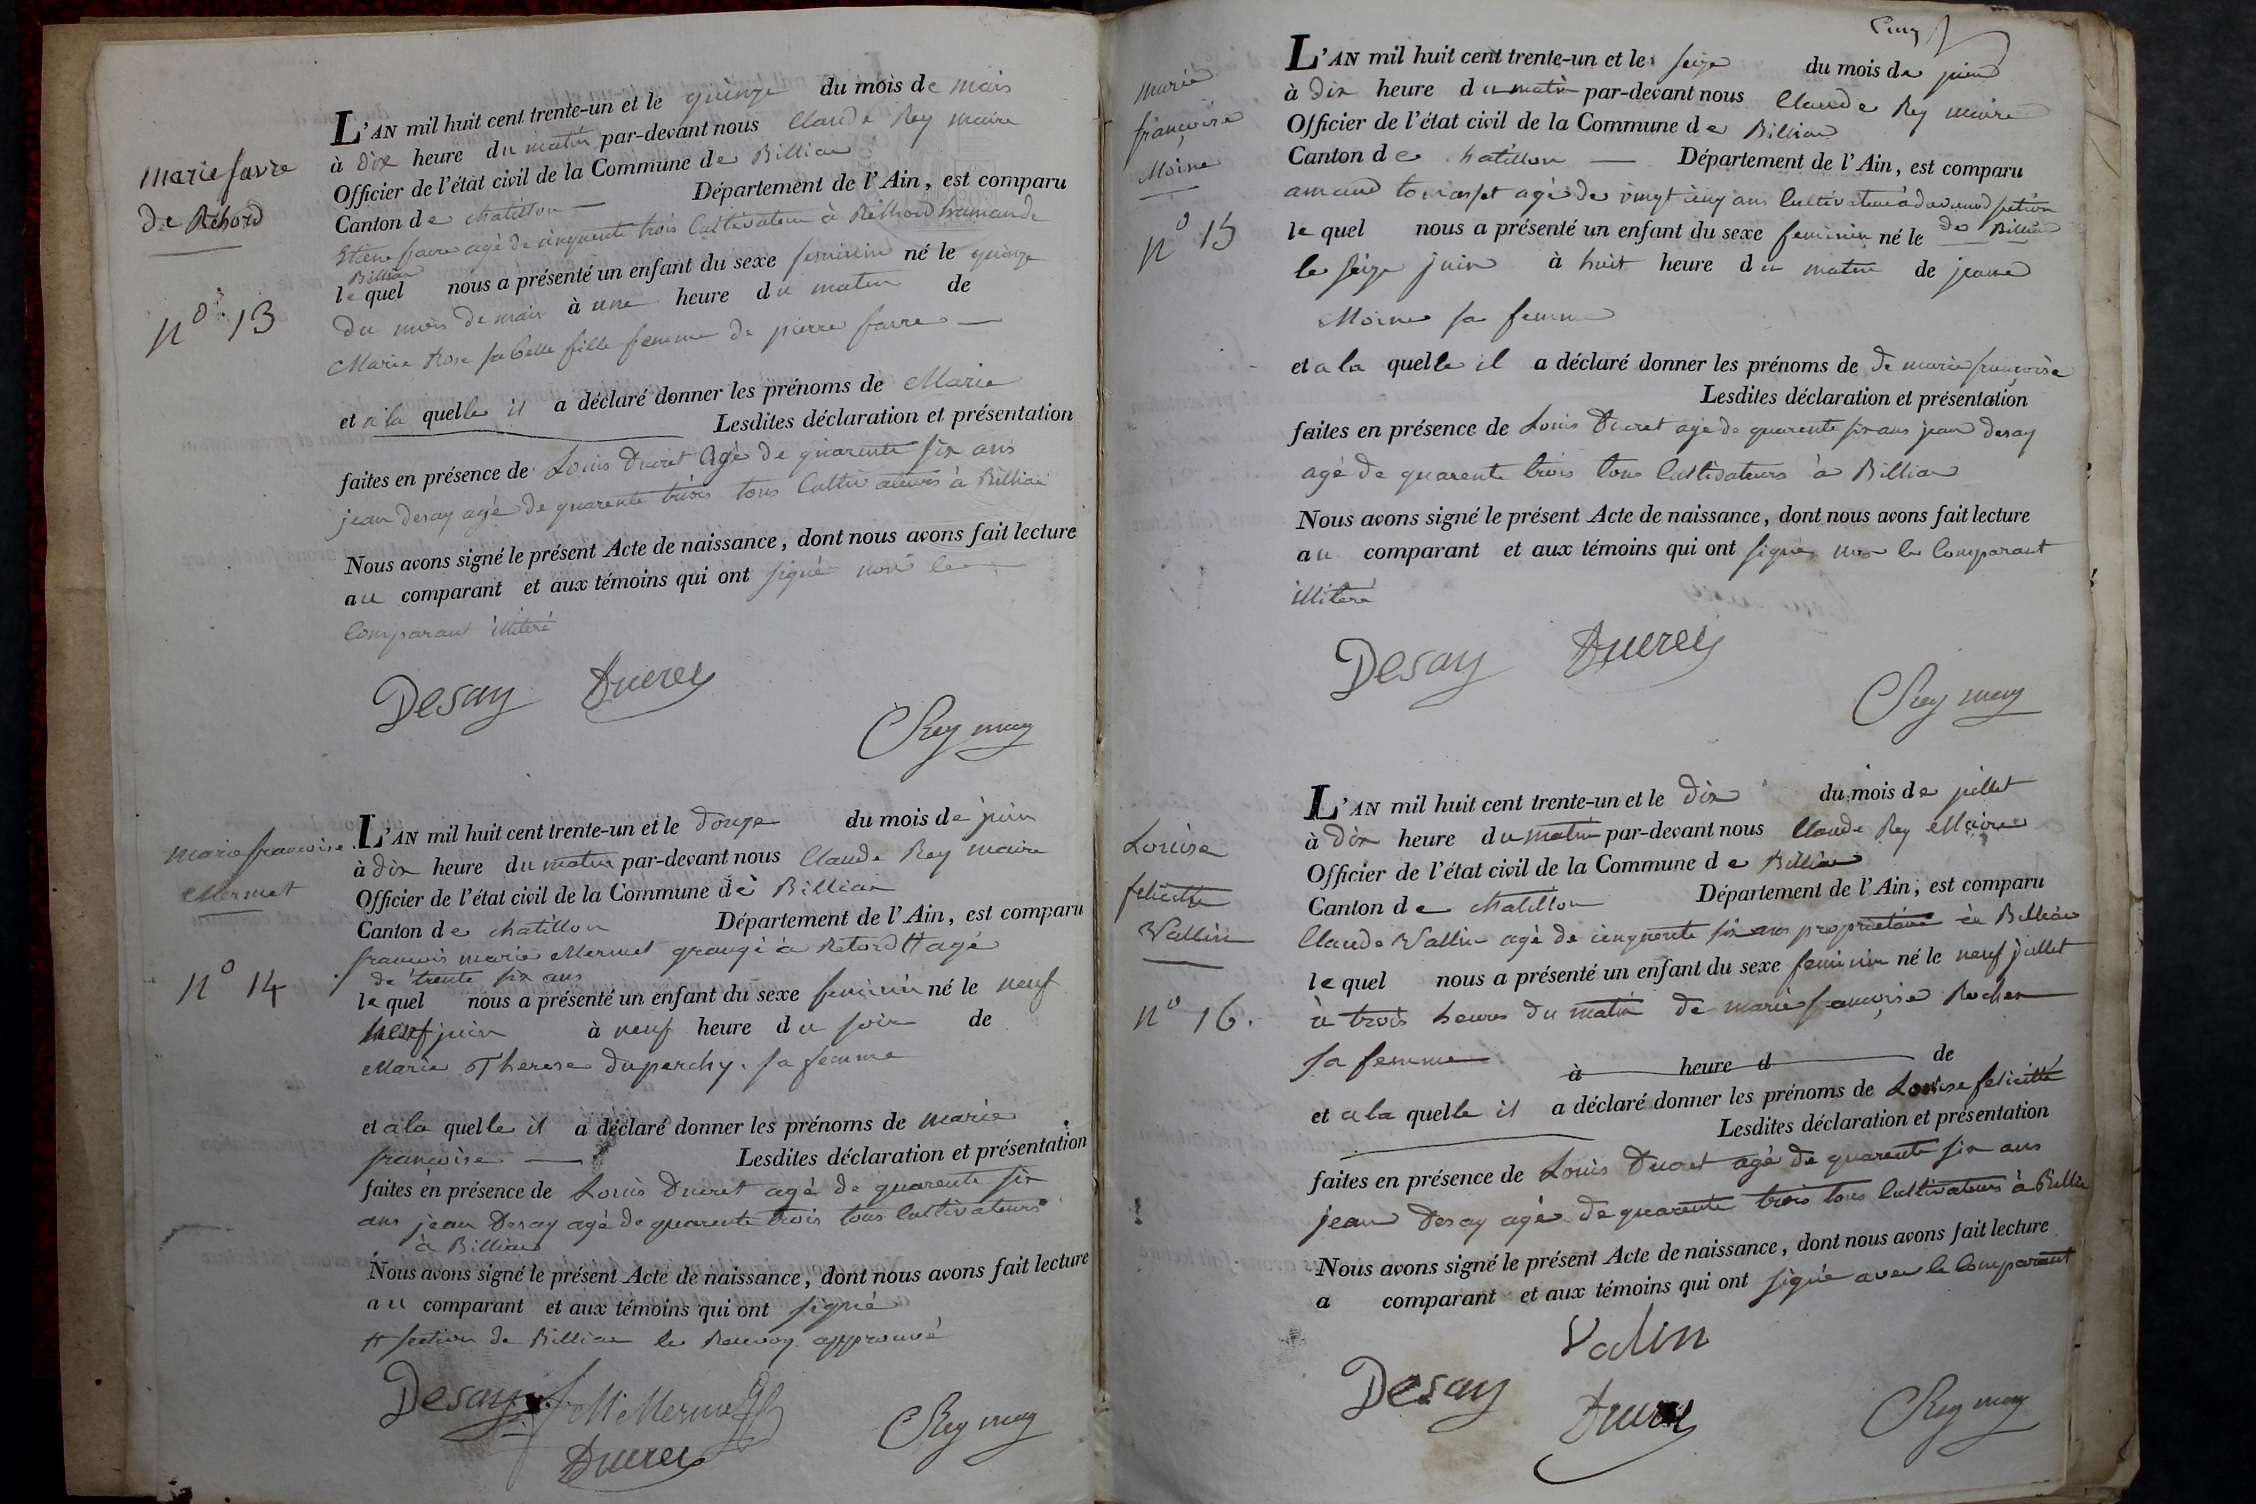 marie favre
de Rehord
n° 13
L'AN mil huit cent trente-un et le quinze du mois de mais
à dix heure du matin par-devant nous Claude Rey maire
Officier de l'état civil de la Commune de Billiau
Canton de chatillon — Département de l'Ain, est comparu
favre agé de cinquente trois Cultivateur à
Billiau
le quel nous a présenté un enfant du sexe feminin né le quinze
du mois de mais à une heure du matin de
Marie Rose sa belle fille femme de pierre favre —
et a la quelle il a déclaré donner les prénoms de Marie
Lesdites déclaration et présentation
faites en présence de Louis Ducret agé de quarente six ans
jean desay agé de quarente trois tous Cultivateurs à Billiau
Nous avons signé le présent Acte de naissance, dont nous avons fait lecture
au comparant et aux témoins qui ont signé non le
Comparant illiteré
Desay Ducret
C Rey may
marie francoise
Mermet
n° 14
L'AN mil huit cent trente-un et le douze du mois de juin
à dix heure du matin par-devant nous Claude Rey maire
Officier de l'état civil de la Commune de Billiau
Canton de chatillon Département de l'Ain, est comparu
francois marie Mermet grangé à Retord # agé
de trente six ans
le quel nous a présenté un enfant du sexe feminin né le neuf
neuf juin à neuf heure du soir de
Marie Therese duperchy. sa femme
et a la quelle il a déclaré donner les prénoms de marie
francoise — Lesdites déclaration et présentation
faites en présence de Louis Ducret agé de quarente six
ans jean Desay agé de quarente trois tous Cultivateurs
à Billiau
Nous avons signé le présent Acte de naissance, dont nous avons fait lecture
au comparant et aux témoins qui ont signé
# section de Billiau le Renvoy approuvé
Desay f M Mermet
Ducret C Rey may
Cinq
marie
françoise
Moine
n° 15
L'AN mil huit cent trente-un et le seize du mois de juin
à dix heure du matin par-devant nous Claude Rey maire
Officier de l'état civil de la Commune de Billiau
Canton de chatillon — Département de l'Ain, est comparu
agé de vingt cinq ans Cultivateur à section
de Billiau
le quel nous a présenté un enfant du sexe feminin né le
le seize juin à huit heure du matin de jeanne
Moine sa femme
et a la quelle il a déclaré donner les prénoms de de marie françoise
Lesdites déclaration et présentation
faites en présence de Louis Ducret agé de quarente six ans jean desay
agé de quarente trois tous Cultivateurs à Billiau
Nous avons signé le présent Acte de naissance, dont nous avons fait lecture
au comparant et aux témoins qui ont signé non le Comparant
illiteré
Desay Ducret
C Rey may
Louise
felicitté
Vallin
n° 16.
L'AN mil huit cent trente-un et le dix du mois de juillet
à dix heure du matin par-devant nous Claude Rey Maire
Officier de l'état civil de la Commune de Billiau
Canton de chatillon Département de l'Ain, est comparu
Claude Vallin agé de cinquente six ans propriétaire à Billiau
le quel nous a présenté un enfant du sexe feminin né le neuf juillet
à trois heures du matin de marie françoise Rochex
sa femme
à heure d de
et a la quelle il a déclaré donner les prénoms de Louise felicitté
Lesdites déclaration et présentation
faites en présence de Louis Ducret agé de quarente six ans
jean Desay agé de quarente trois tous Cultivateurs à Billiau
Nous avons signé le présent Acte de naissance, dont nous avons fait lecture
a comparant et aux témoins qui ont signé avec le Comparant
Valin
Desay Ducret C Rey may